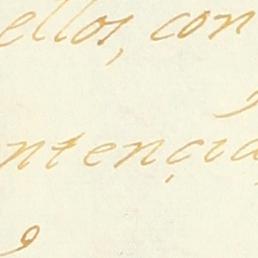 ellos, con
ntençia